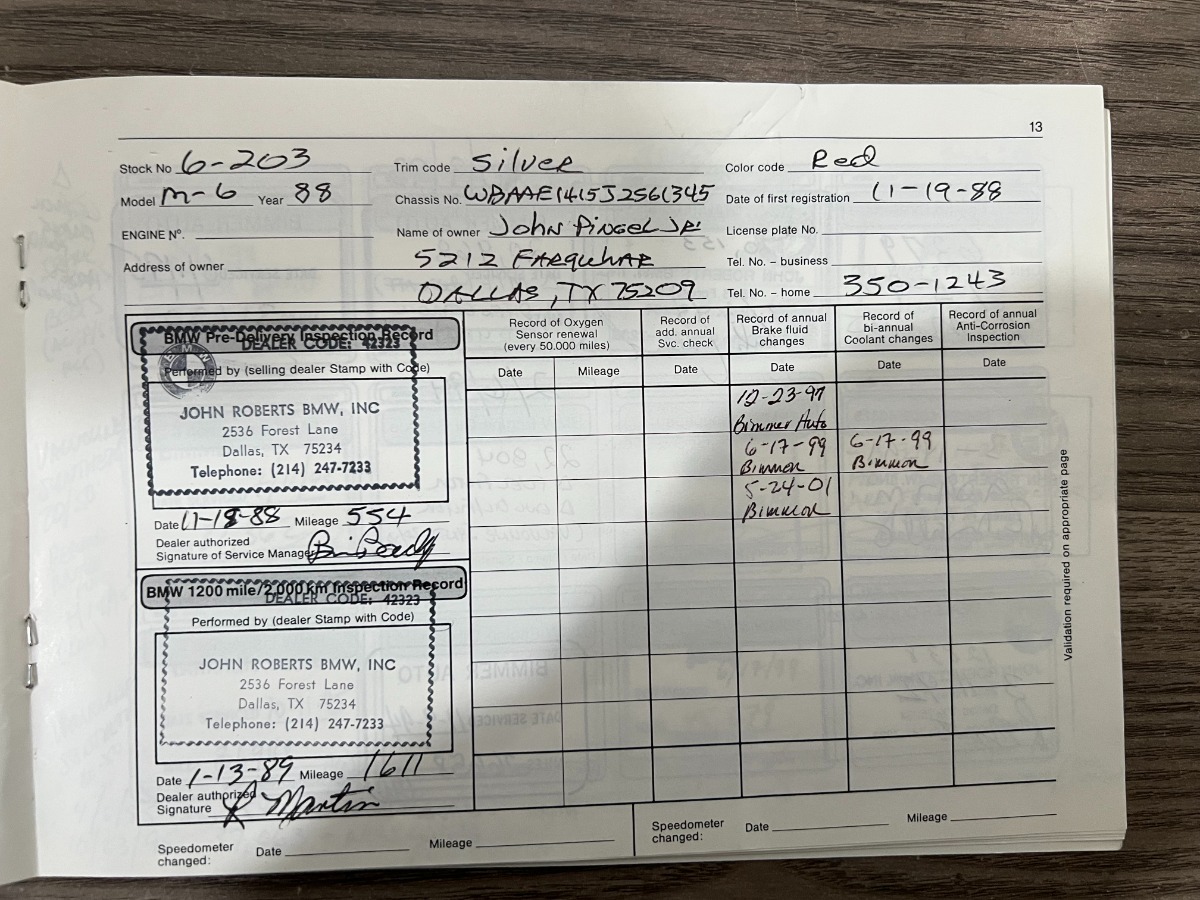 13
Stock No 6-203 Trim code Silver Color code Red
Model M-6 Year 88 Chassis No. WBAAE1415J2561345 Date of first registration 11-19-88
ENGINE Nº. Name of owner John Pingel Jr. License plate No.
Address of owner 5212 FARQUHAR Tel. No. – business
DALLAS, TX 75209 Tel. No. – home 350-1243
BMW Pre-Delivery Inspection Record
DEALER CODE: 42323
Performed by (selling dealer Stamp with Code)
JOHN ROBERTS BMW, INC
2536 Forest Lane
Dallas, TX 75234
Telephone: (214) 247-7233
Date 11-18-88 Mileage 554
Dealer authorized
Signature of Service Manager
BMW 1200 mile/2,000 km Inspection Record
DEALER CODE: 42323
Performed by (dealer Stamp with Code)
JOHN ROBERTS BMW, INC
2536 Forest Lane
Dallas, TX 75234
Telephone: (214) 247-7233
Date 1-13-89 Mileage 1611
Dealer authorized
Signature R Martin
Record of Oxygen
Sensor renewal
(every 50.000 miles)
Date Mileage
Record of
add. annual
Svc. check
Date
Record of annual
Brake fluid
changes
Date
12-23-97
Bimmer Auto
6-17-99
Bimmer
5-24-01
Bimmer
Record of
bi-annual
Coolant changes
Date
6-17-99
Bimmer
Record of annual
Anti-Corrosion
Inspection
Date
Validation required on appropriate page
Speedometer
changed: Date Mileage
Speedometer
changed: Date Mileage